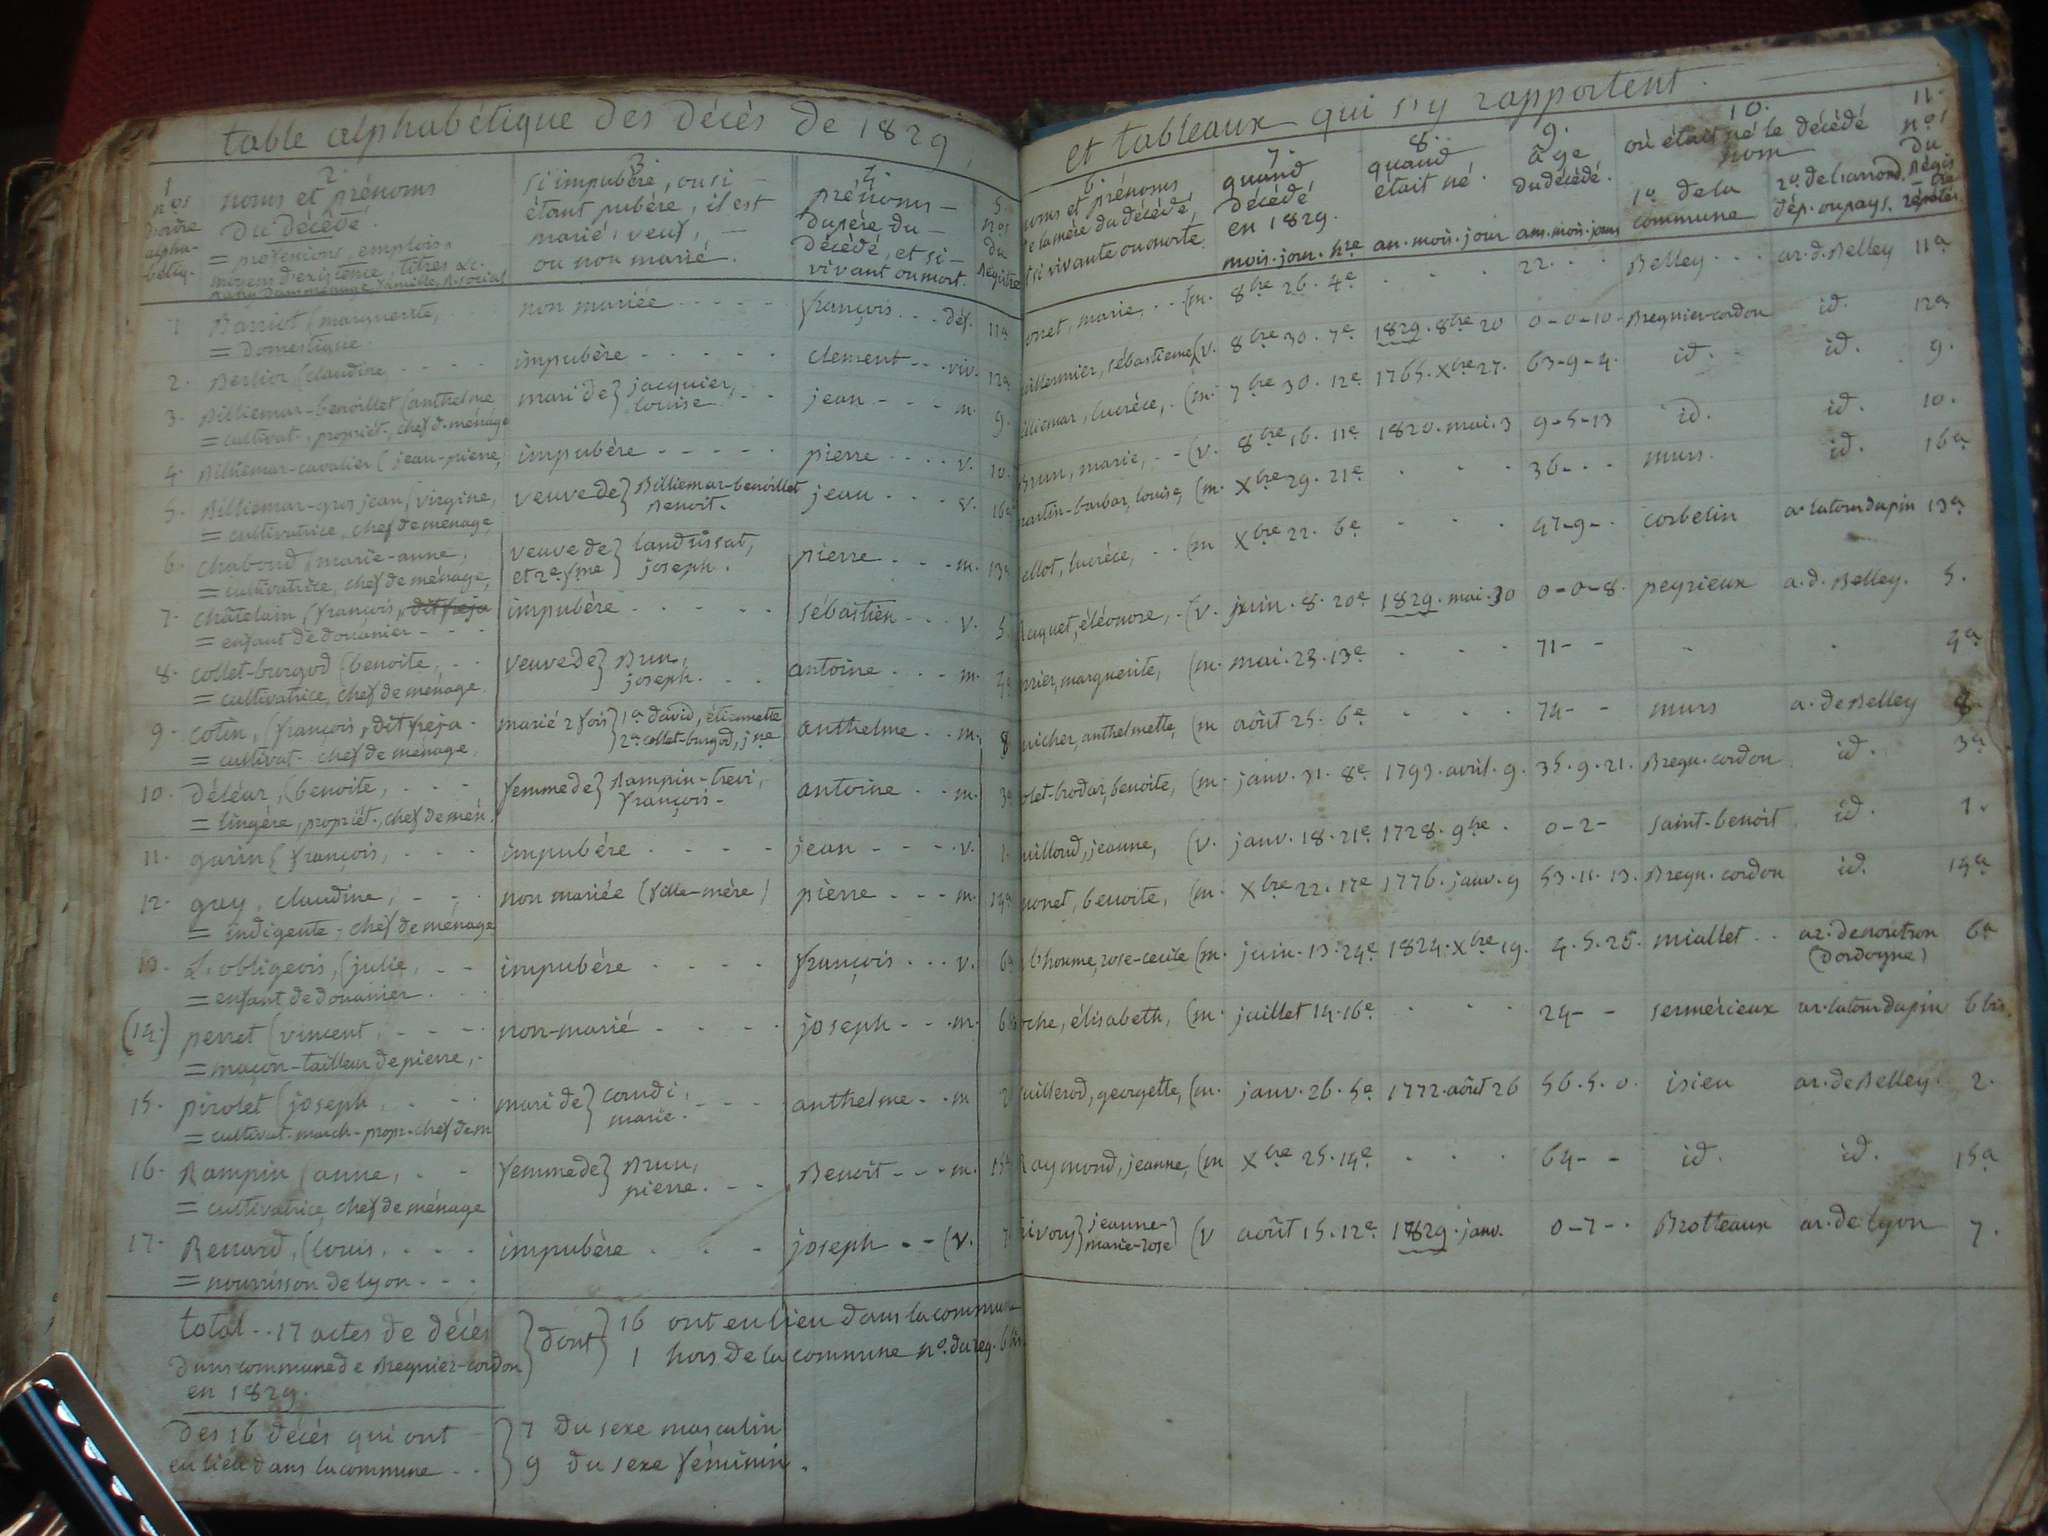 table alphabétique des décès de 1829,
1
nos
d'ordre
alpha-
bétiq.
2.
noms et prénoms
du décédé.
= professions, emplois,
moyens d'existence, titres &c.
3.
si impubère, ou si
étant pubère, il est
marié, veuf, —
ou non marié.
4.
prénoms —
du père du —
décédé, et si —
vivant ou mort.
5.
nos
du
régistre
1 Barriot (marguerite, . . . non mariée . . . . . françois . . . déf. 11a
= domestique.
2. Berlior (claudine . . . . impubère . . . . . clement . . . viv. 12a
3. Billiemar-benoillet (anthelme mari de } jacquier, louise . . jean . . . m. 9.
= cultivat., propriét., chef d. ménage
4. Billiemar-cavalier ( jean-pierre, impubère . . . . . pierre . . . . v. 10.
5. Billiemar-gros jean, (virgine, veuve de } Billiemar-benoillet Benoit. jean . . . v. 16a
= cultivatrice, chef de ménage,
6. chaboud (marie-anne, veuve de } landussat, pierre . . . m. 13a
= cultivatrice, chef de ménage, et 2e fme joseph.
7. châtelain (françois, dit freja impubère . . . . . sébastien . . . v. 5.
= enfant de douanier . . .
8. collet-burgod (benoite, . . veuve de } Brun, joseph . . . antoine . . . m. 4a
= cultivatrice, chef de ménage.
9. cotin, (françois, dit freja . marié 2 fois } 1a david, étiennette anthelme . . m. 8
= cultivat. chef de ménage. 2a collet-burgod, jne
10. déléar, (benoite, . . . femme de } Rampin-trevi, françois . antoine . . m. 3a
= lingère, propriét., chef de mén.
11. garin ( françois, . . . impubère . . . . jean . . . . v. 1.
12. guy, claudine, . . . non mariée (fille-mère) pierre . . . m. 14a
= indigente, chef de ménage
13. L'obligeois, (julie, . . impubère . . . . françois . . . v. 6a
= enfant de douanier . . .
(14.) perret (vincent, . . . non-marié . . . . joseph . . . m. 6bis
= maçon-tailleur de pierre, .
15. pirolet (joseph, . . . mari de } comdi, marie. . . . anthelme . . m 2
= cultivat-march-propr-chef de m
16. Rampin (anne, . . femme de } Brun, pierre. . . Benoit . . . m. 15a
= cultivatrice, chef de ménage
17. Renard, (louis, . . . impubère . . . joseph . . (v. 7
= nourrisson de lyon . . .
total . . 17 actes de décès } dont } 16 ont eu lieu dans la commune
dans commune de Bregnier-cordon 1 hors de la commune no. du reg. 6 bis.
en 1829.
Des 16 décès qui ont } 7 du sexe masculin
eu lieu dans la commune . . 9 du sexe féminin.
et tableaux qui s'y rapportent.
6.
noms et prénoms
de la mère du décédé,
et si vivante ou morte.
7.
quand
décédé
en 1829.
mois. jour. hre
8.
quand
était né.
an. mois. jour
9.
âge
du décédé.
ans. mois. jours
10.
où était né le décédé
nom
1o. de la
commune
2o. de l'arrond,
dép. ou pays.
11.
nos
du
régis
-tre
répétés
onet, marie, . . (m. 8bre 26. 4e . . . 22 . . . Belley . . . ar. d. Belley 11a
uillermier, sébastienne (v. 8bre 30. 7e 1829. 8bre 20 0-0-10- Bregnier-cordon id. 12a
illiemar, lucrèce, . (m. 7bre 30. 12e 1765. Xbre 27. 63-9-4. id. id. 9.
Brun, marie, . . (v. 8bre 16. 11e 1820. mai. 3 9-5-13 id. id. 10.
martin-barbar, louise, (m. Xbre 29. 21e . . . 36 . . . murs. id. 16a
ellot, lucrèce, . . (m Xbre 22. 6e . . . 47-9- . corbelin a. latour dupin 13a
Raquet, éléonore, . (v. juin. 8. 20e 1829. mai. 30 0-0-8. peyrieux a. d. Belley. 5.
rrier, marguerite, (m. mai. 23. 13e . . . 71- - . . 4a
uicher, anthelmette, (m août 25. 6e . . . 74- - murs a. de Belley 8.
olet-brodar, benoite, (m. janv. 31. 8e 1793. avril. 9. 35. 9. 21. Bregn. cordon id. 3a
uilloud, jeanne, (v. janv. 18. 21e 1728. 9bre . 0-2- saint-benoit id. 1.
monet, benoite, (m. Xbre 22. 17e 1776. janv. 9 53. 11. 13. Bregn. cordon id. 14a
bhomme, rose-cecile (m. juin. 13. 24e 1824. Xbre 19. 4. 5. 25. miallet . . ar. de nontron (dordogne) 6a
oche, élisabeth, (m. juillet 14. 16e . . . 24- - sermérieux ar. latour dupin 6 bis.
uillerod, georgette, (m. janv. 26. 5e 1772. août 26 56. 5. 0. isieu ar. de Belley. 2.
Raymond, jeanne, (m Xbre 25. 14e . . . 64- - id. id. 15a
rivoux } jeanne-marie-rose (v août 15. 12e 1829. janv. 0-7- . Brotteaux ar. de lyon 7.